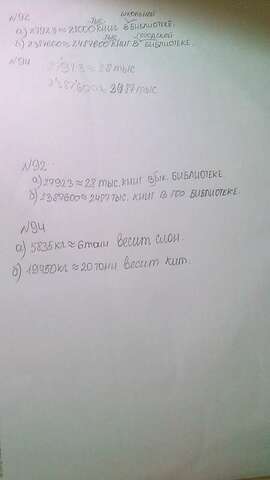 №92 школьной
а) 27923 ≈ 28000 тыс. книг в библиотеке.
б) 2387600 ≈ 2487600 тыс. книг в городской библиотеке.
№94 27923 ≈ 28 тыс
≈ 3987 тыс
№92
а) 27923 ≈ 28 тыс. книг в шк. библиотеке.
б) 2387600 ≈ 2487 тыс. книг в гор библиотеке.
№94
а) 5835 кг ≈ 6 тонн весит слон.
б) 19950 кг ≈ 20 тонн весит кит.